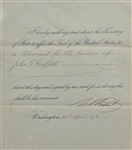 I hereby authorize and direct the Secretary
of State to affix the Seal of the United States to
a Warrant for the pardon of
John D. Griffith
dated this day and signed by me and for so doing this
shall be his warrant.
Washington